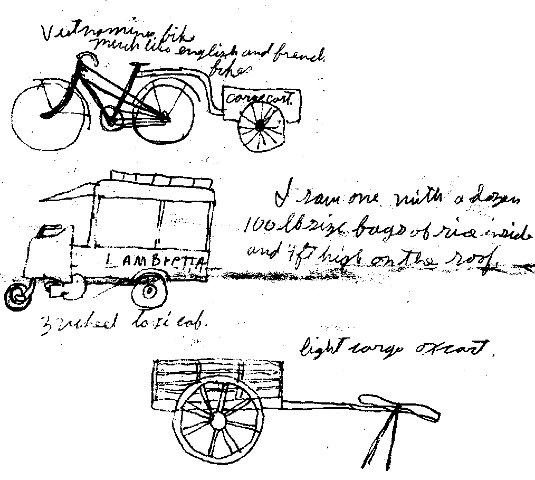 Vietnamine bike
much like english and french
bike
cargo cart.
I saw one with a dozen
100 lb size bags of rice inside
and 4ft high on the roof.
LAMBRETTA
3 wheel taxi cab.
light cargo oxcart.